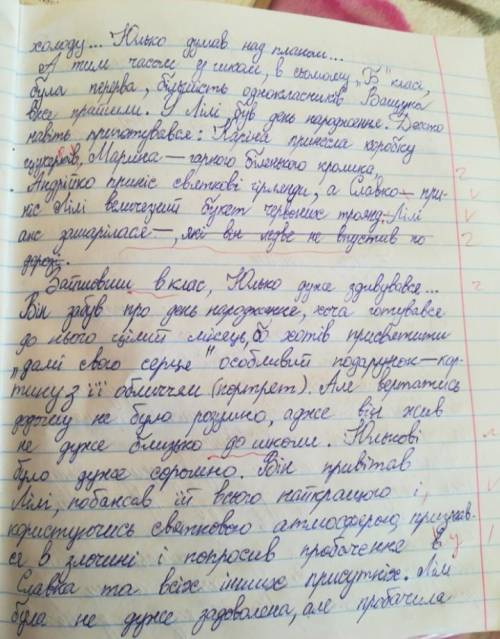 холоду... Юлько думав над планом...
А тим часом у школі, в сьомому „Б" класі,
була перерва, більшість однокласників Вашука
вже прийшли. У Лілі був день народження. Дехто
навіть пригатувався: Каріна принесла коробку
цукерків, Марійка — гарного біленького кролика,
Андрійко приніс святкові гірлянди, а Славко – при-
ніс Лілі величезний букет червоних троянд. Лілі
аж зашарілася —, які він ледве не впустив по
дорозі.
Зайшовши в клас, Юлько дуже здивувався...
Він забув про день народження, хоча готувався
до нього цілий місяць, бо хотів присвятити
„дамі свого серця" особливий подарунок — кар-
тину з її обличчям (портрет). Але вертатись
додому не було розумно, адже він жив
не дуже близько до школи. Юлькові
було дуже соромно. Він привітав
Лілі, побажав їй всього найкращого і,
користуючись святковою атмосферою, признав-
ся в злочині і попросив пробачення в
Славка та всіх інших присутніх. Лілі
була не дуже задоволена, але пробачила